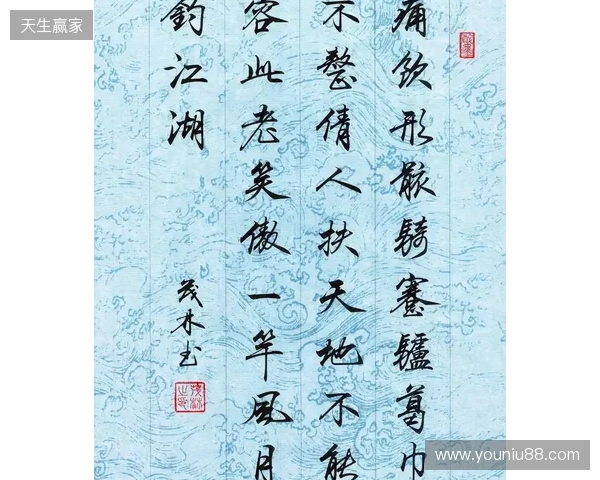 天生赢家
痛饮形骸騎蹇驢葛巾
不整倩人扶天地不能
容此老笑傲一竿風月
釣江湖
茂林书
www.youniu88.com